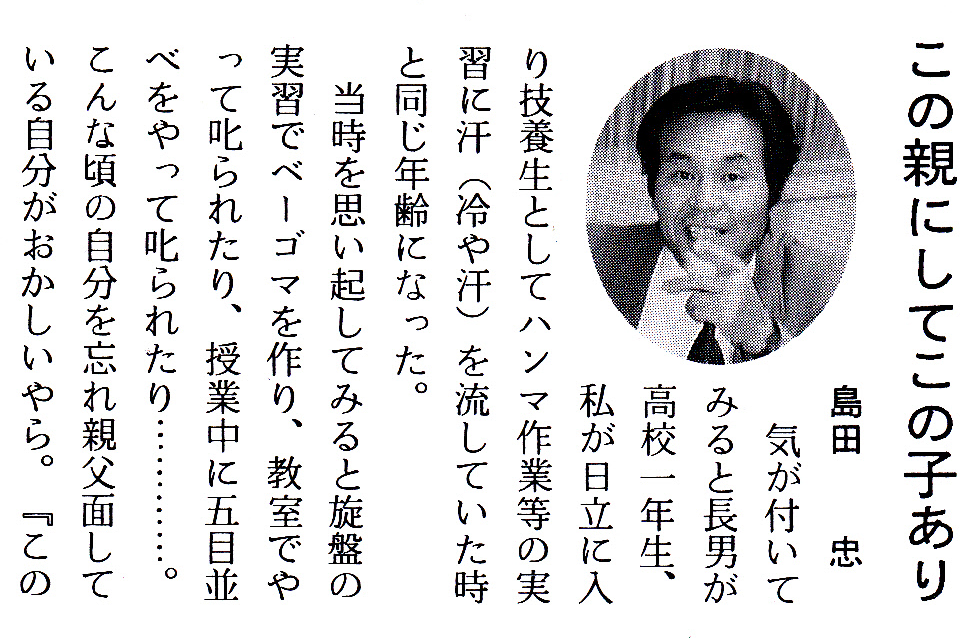 この親にしてこの子あり
島田　忠
気が付いて
みると長男が
高校一年生、
私が日立に入
り技養生としてハンマ作業等の実
習に汗（冷や汗）を流していた時
と同じ年齢になった。
当時を思い起してみると旋盤の
実習でベーゴマを作り、教室でや
って叱られたり、授業中に五目並
べをやって叱られたり…………。
こんな頃の自分を忘れ親父面して
いる自分がおかしいやら。『この